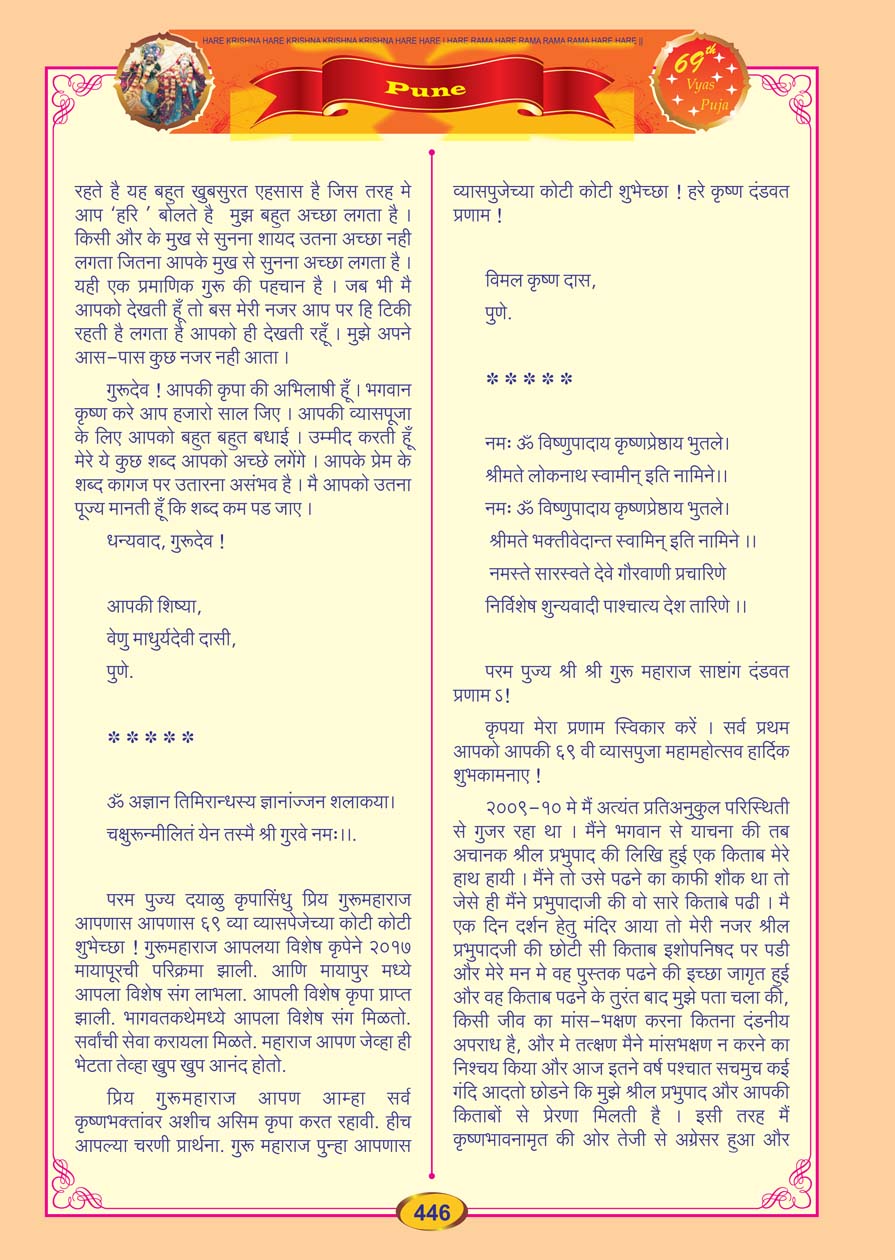 HARE KRISHNA HARE KRISHNA KRISHNA KRISHNA HARE HARE | HARE RAMA HARE RAMA RAMA RAMA HARE HARE ||
Pune
69th
Vyas
Puja
रहते है यह बहुत खुबसुरत एहसास है जिस तरह मे
आप ‘हरि ’ बोलते है मुझ बहुत अच्छा लगता है ।
किसी और के मुख से सुनना शायद उतना अच्छा नही
लगता जितना आपके मुख से सुनना अच्छा लगता है ।
यही एक प्रमाणिक गुरू की पहचान है । जब भी मै
आपको देखती हूँ तो बस मेरी नजर आप पर हि टिकी
रहती है लगता है आपको ही देखती रहूँ । मुझे अपने
आस-पास कुछ नजर नही आता ।
गुरूदेव ! आपकी कृपा की अभिलाषी हूँ । भगवान
कृष्ण करे आप हजारो साल जिए । आपकी व्यासपूजा
के लिए आपको बहुत बहुत बधाई । उम्मीद करती हूँ
मेरे ये कुछ शब्द आपको अच्छे लगेंगे । आपके प्रेम के
शब्द कागज पर उतारना असंभव है । मै आपको उतना
पूज्य मानती हूँ कि शब्द कम पड जाए ।
धन्यवाद, गुरूदेव !
आपकी शिष्या,
वेणु माधुर्यदेवी दासी,
पुणे.
* * * * *
ॐ अज्ञान तिमिरान्धस्य ज्ञानांज्जन शलाकया।
चक्षुरून्मीलितं येन तस्मै श्री गुरवे नमः।।.
परम पुज्य दयाळु कृपासिंधु प्रिय गुरूमहाराज
आपणास आपणास ६९ व्या व्यासपेजेच्या कोटी कोटी
शुभेच्छा ! गुरूमहाराज आपलया विशेष कृपेने २०१७
मायापूरची परिक्रमा झाली. आणि मायापुर मध्ये
आपला विशेष संग लाभला. आपली विशेष कृपा प्राप्त
झाली. भागवतकथेमध्ये आपला विशेष संग मिळतो.
सर्वांची सेवा करायला मिळते. महाराज आपण जेव्हा ही
भेटता तेव्हा खुप खुप आनंद होतो.
प्रिय गुरूमहाराज आपण आम्हा सर्व
कृष्णभक्तांवर अशीच असिम कृपा करत रहावी. हीच
आपल्या चरणी प्रार्थना. गुरू महाराज पुन्हा आपणास
व्यासपुजेच्या कोटी कोटी शुभेच्छा ! हरे कृष्ण दंडवत
प्रणाम !
विमल कृष्ण दास,
पुणे.
* * * * *
नमः ॐ विष्णुपादाय कृष्णप्रेष्ठाय भुतले।
श्रीमते लोकनाथ स्वामीन् इति नामिने।।
नमः ॐ विष्णुपादाय कृष्णप्रेष्ठाय भुतले।
श्रीमते भक्तीवेदान्त स्वामिन् इति नामिने ।।
नमस्ते सारस्वते देवे गौरवाणी प्रचारिणे
निर्विशेष शुन्यवादी पाश्चात्य देश तारिणे ।।
परम पुज्य श्री श्री गुरू महाराज साष्टांग दंडवत
प्रणाम ऽ!
कृपया मेरा प्रणाम स्विकार करें । सर्व प्रथम
आपको आपकी ६९ वी व्यासपुजा महामहोत्सव हार्दिक
शुभकामनाए !
२००९-१० मे मैं अत्यंत प्रतिअनुकुल परिस्थिती
से गुजर रहा था । मैंने भगवान से याचना की तब
अचानक श्रील प्रभुपाद की लिखि हुई एक किताब मेरे
हाथ हायी । मैंने तो उसे पढने का काफी शौक था तो
जेसे ही मैंने प्रभुपादाजी की वो सारे किताबे पढी । मै
एक दिन दर्शन हेतु मंदिर आया तो मेरी नजर श्रील
प्रभुपादजी की छोटी सी किताब इशोपनिषद पर पडी
और मेरे मन मे वह पुस्तक पढने की इच्छा जागृत हुई
और वह किताब पढने के तुरंत बाद मुझे पता चला की,
किसी जीव का मांस-भक्षण करना कितना दंडनीय
अपराध है, और मे तत्क्षण मैने मांसभक्षण न करने का
निश्चय किया और आज इतने वर्ष पश्चात सचमुच कई
गंदि आदतो छोडने कि मुझे श्रील प्रभुपाद और आपकी
किताबों से प्रेरणा मिलती है । इसी तरह मैं
कृष्णभावनामृत की ओर तेजी से अग्रेसर हुआ और
446